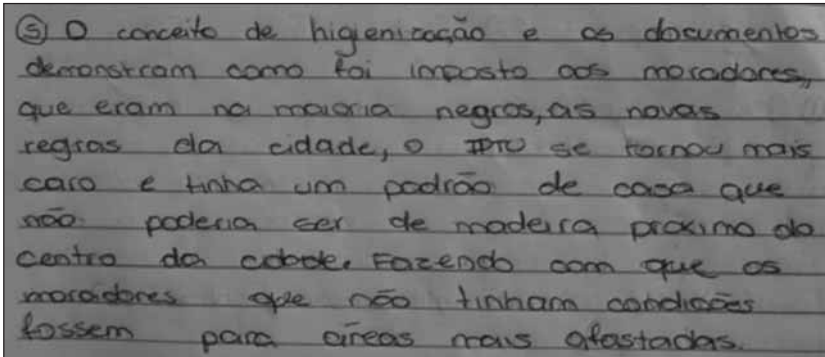 ⑤ O conceito de higienização e os documentos
demonstram como foi imposto aos moradores,
que eram na maioria negros, as novas
regras da cidade, o IPTU se tornou mais
caro e tinha um padrão de casa que
não poderia ser de madeira proximo do
centro da cidade. Fazendo com que os
moradores que não tinham condições
fossem para áreas mais afastadas.